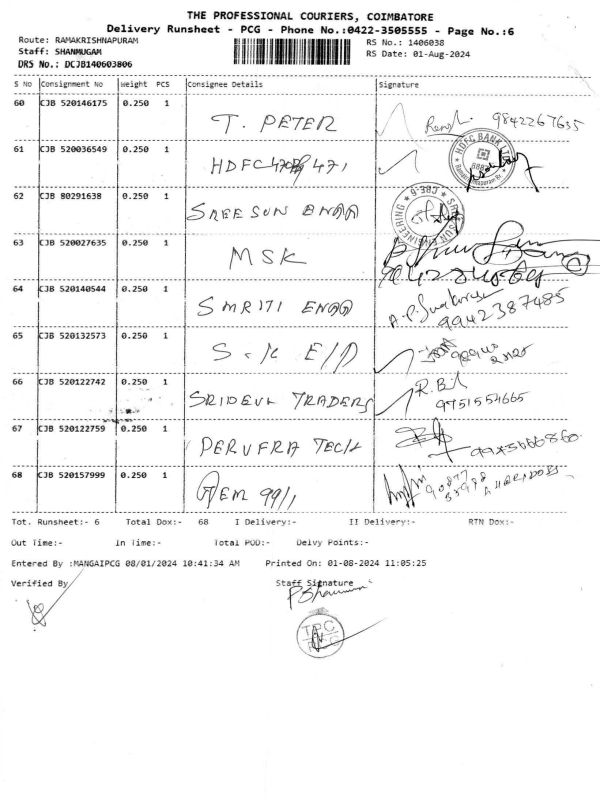 THE PROFESSIONAL COURIERS, COIMBATORE
Delivery Runsheet - PCG - Phone No.:0422-3505555 - Page No.:6
Route: RAMAKRISHNAPURAM
RS No.: 1406038
Staff: SHANMUGAM
RS Date: 01-Aug-2024
DRS No.: DCJB140603806
S No Consignment No Weight PCS Consignee Details Signature
60 CJB 520146175 0.250 1
T. PETER 9842267635
61 CJB 520036549 0.250 1
HDFC 471
HDFC BANK LTD
62 CJB 80291638 0.250 1
SREE SUN ENGG
CBE-6
ENGINEERING
63 CJB 520027635 0.250 1
MSK
64 CJB 520140544 0.250 1
SMRITI ENGG 9942387485
65 CJB 520132573 0.250 1
S.K E/P
66 CJB 520122742 0.250 1
SRIDEVI TRADERS 9751554665
67 CJB 520122759 0.250 1
PERUFRA TECH
68 CJB 520157999 0.250 1
GEM 99/1
Tot. Runsheet:- 6 Total Dox:- 68 I Delivery:- II Delivery:- RTN Dox:-
Out Time:- In Time:- Total POD:- Delvy Points:-
Entered By :MANGAIPCG 08/01/2024 10:41:34 AM Printed On: 01-08-2024 11:05:25
Verified By Staff Signature
TPC